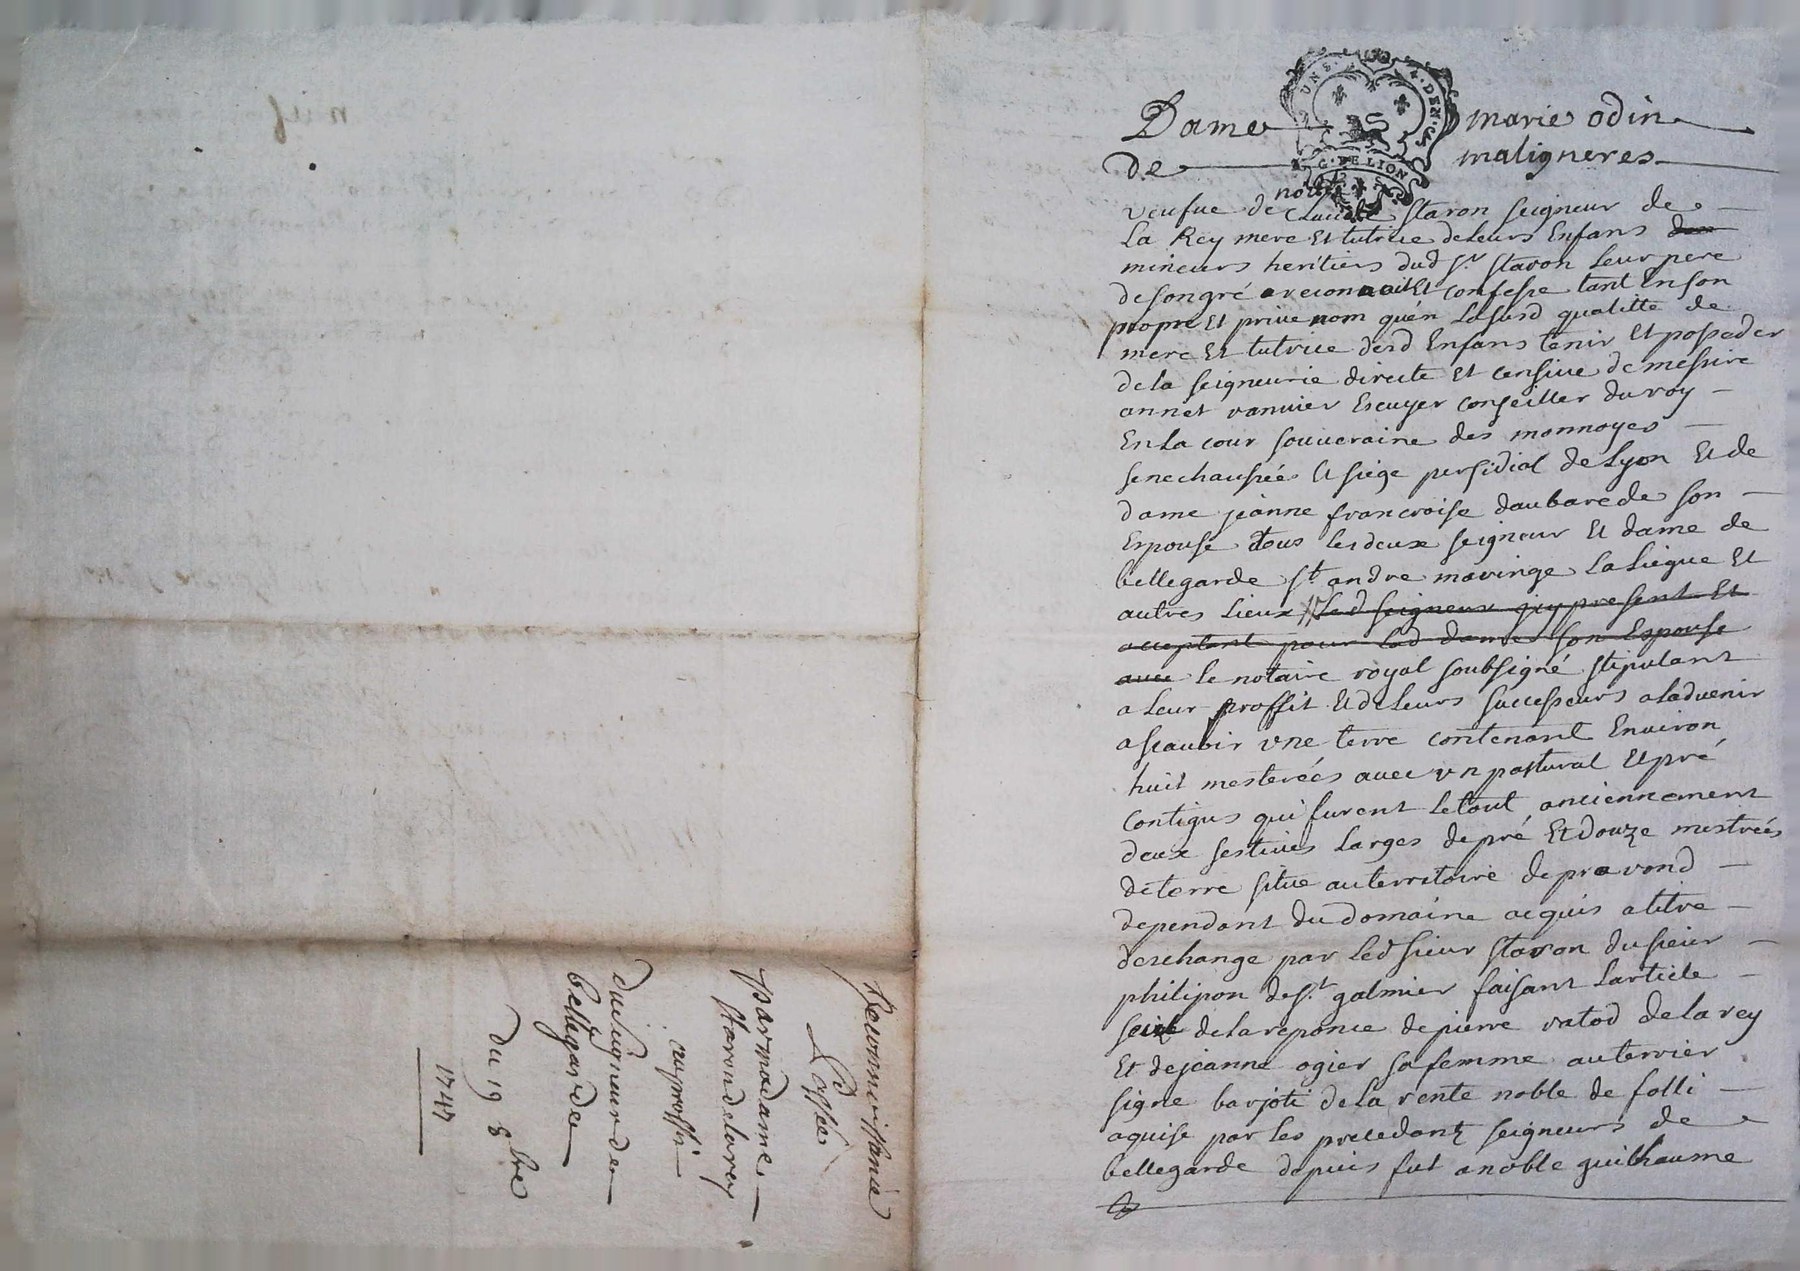 Reconnoissance
passée
par madame
staron de la rey
au proffit
du seigneur de
bellegarde
du 19 8bre
1747
UNS 4 DEN.S
G. DE LION
Dame marie odin
de maligneres
noble
veufue de claude staron seigneur de
La Rey mere Et tutrice de leurs Enfans
mineurs heritiers dud sr. staron Leur pere
de son gré a reconnoit Et confesse tant En son
propre Et priue nom qu'en La susd qualitte de
mere Et tutrice desd Enfans tenir Et posseder
de la seigneurie directe Et censiue de messire
annet vanuier Escuyer conseiller du roy
En La cour souueraine des monnoyes
senechaussée Et siege persidial de Lyon Et de
dame jeanne francroise daubarede son
Espouse tous les deux seigneur Et dame de
bellegarde st. andre mavinge La Liegue Et
autres Lieux Led seigneur icy present Et
acceptant pour Lad dame son Espouse
auec le notaire royal soubsigné stipulant
a Leur proffit Et de Leurs successeurs a Laduenir
a scauoir vne terre contenant Enuiron
huit mesterées auec vn pastural Et pré
contigus qui furent Le tout anciennement
deux sestiues Larges de pré Et douze mestreés
de terre situe au territoire de pra vond
dependant du domaine acquis a titre
deschange par Led sieur staron du sieur
philipon de st. galmier faisant Larticle
seize de la reponce de pierre vatod de la rey
Et de jeanne ogier sa femme au terrier
signe barjoti de La rente noble de folli
aquise par les precedantz seigneurs de
bellegarde depuis fut a noble guilhaume